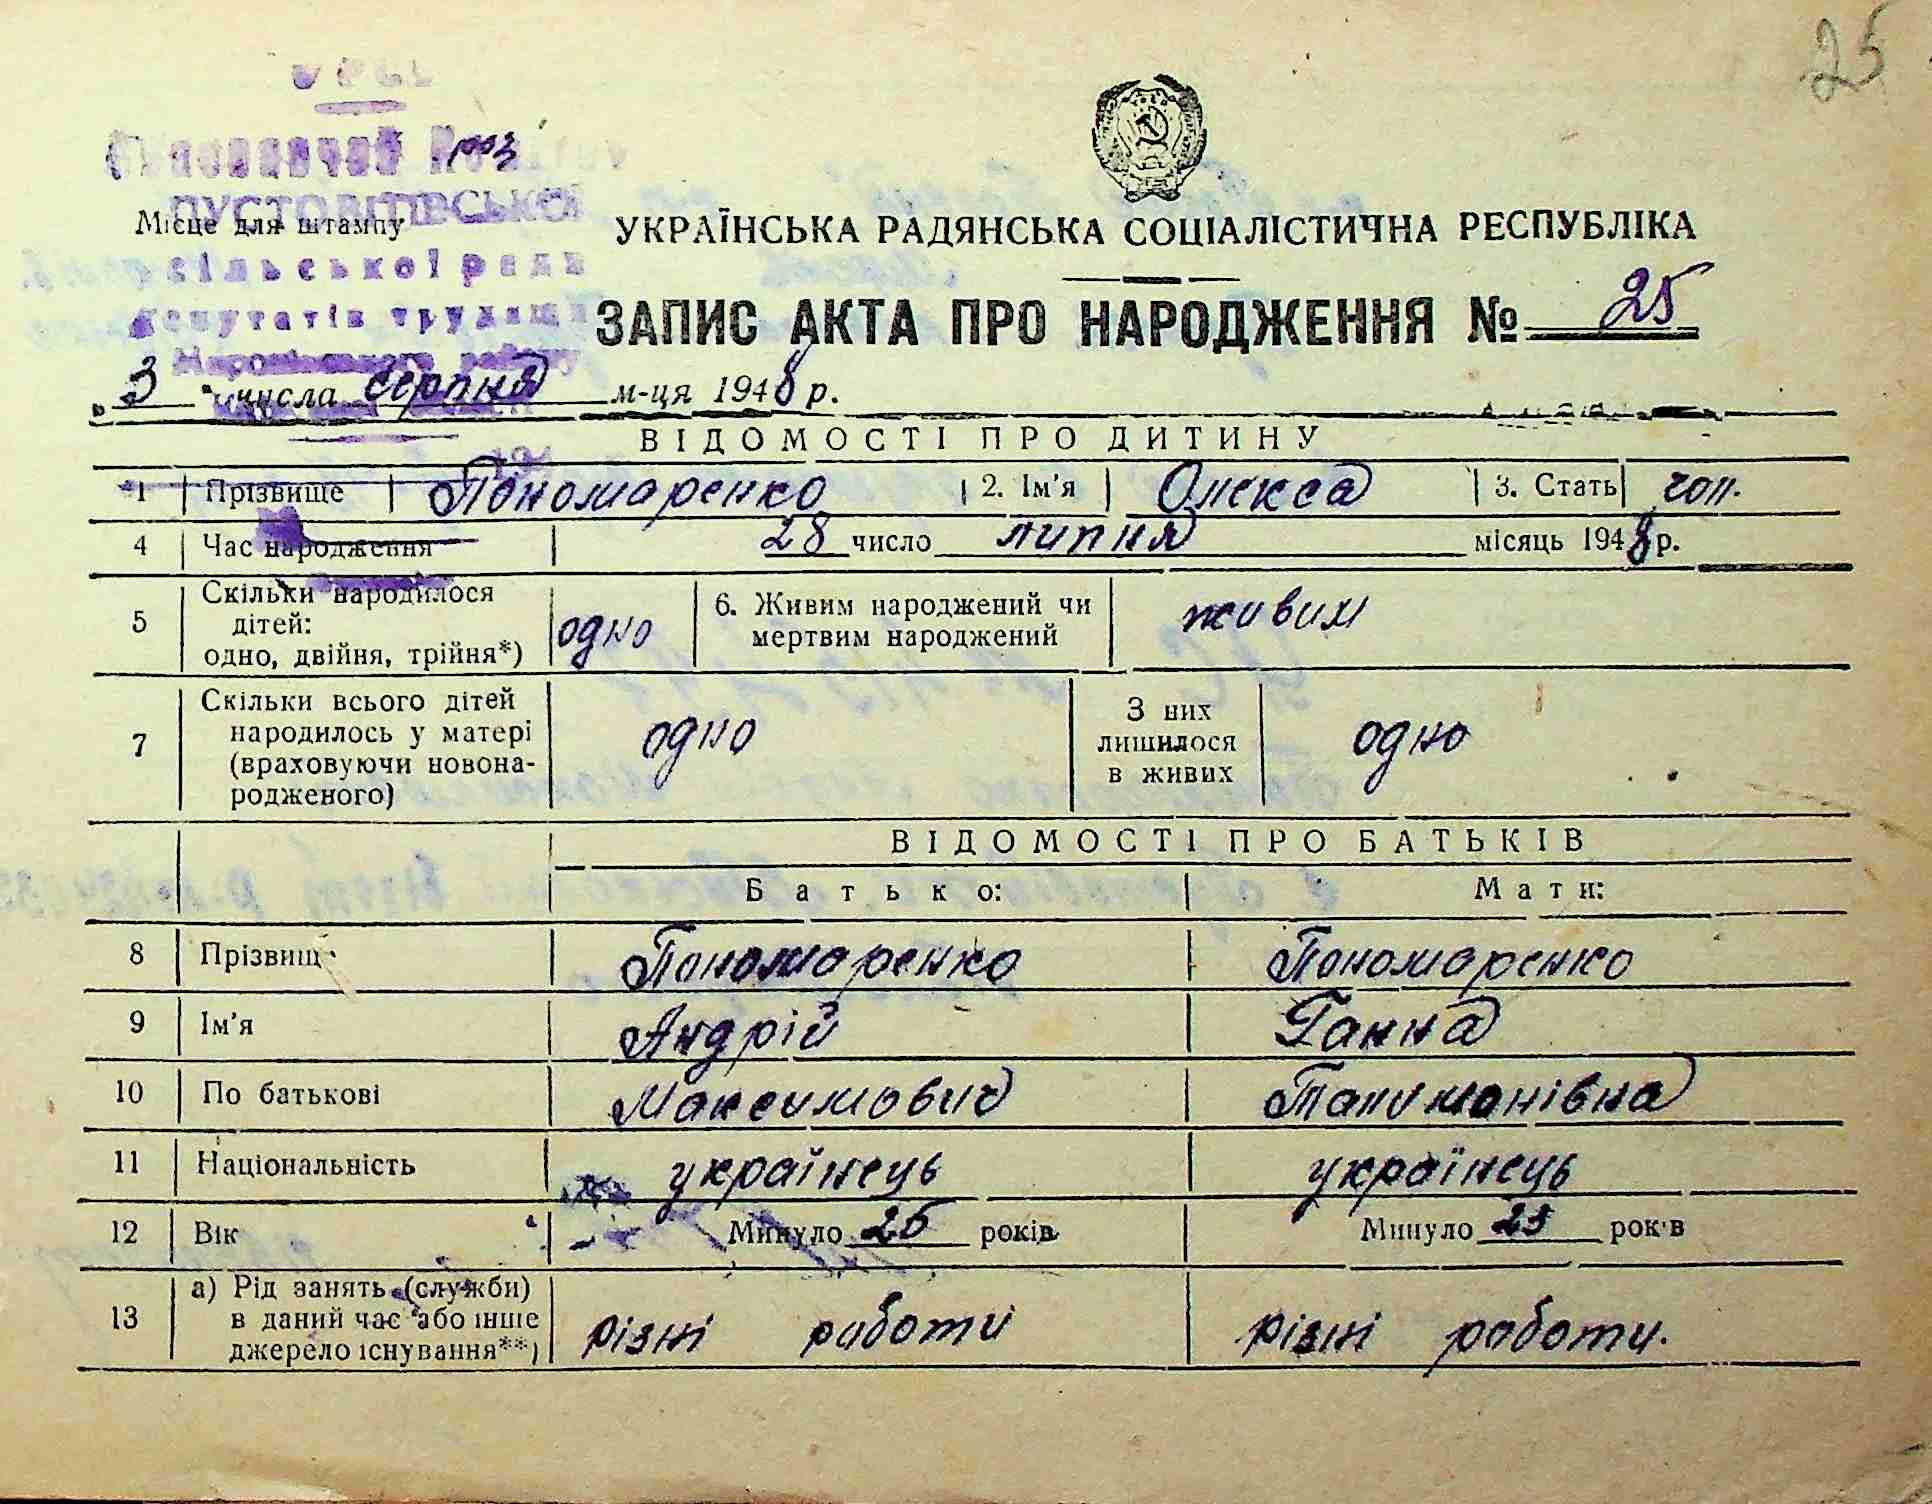 25
УРСР
ПУСТОВІТІВСЬКОЇ
Місце для штампу
сільської ради
депутатів трудящих
УКРАЇНСЬКА РАДЯНСЬКА СОЦІАЛІСТИЧНА РЕСПУБЛІКА
ЗАПИС АКТА ПРО НАРОДЖЕННЯ № 25
„3" числа серпня м-ця 1948 р.
ВІДОМОСТІ ПРО ДИТИНУ
1 Прізвище Пономаренко 2. Ім'я Олекса 3. Стать чол.
4 Час народження 28 число липня місяць 1948 р.
5 Скільки народилося дітей: одно, двійня, трійня*) одно 6. Живим народжений чи мертвим народжений живим
7 Скільки всього дітей народилось у матері (враховуючи новонародженого) одно З них лишилося в живих одно
ВІДОМОСТІ ПРО БАТЬКІВ
Батько: Мати:
8 Прізвищ Пономаренко Пономаренко
9 Ім'я Андрій Ганна
10 По батькові Максимович
11 Національність українець українець
12 Вік Минуло 26 років Минуло 25 років
13 а) Рід занять (служби) в даний час або інше джерело існування**) різні работи різні работи.